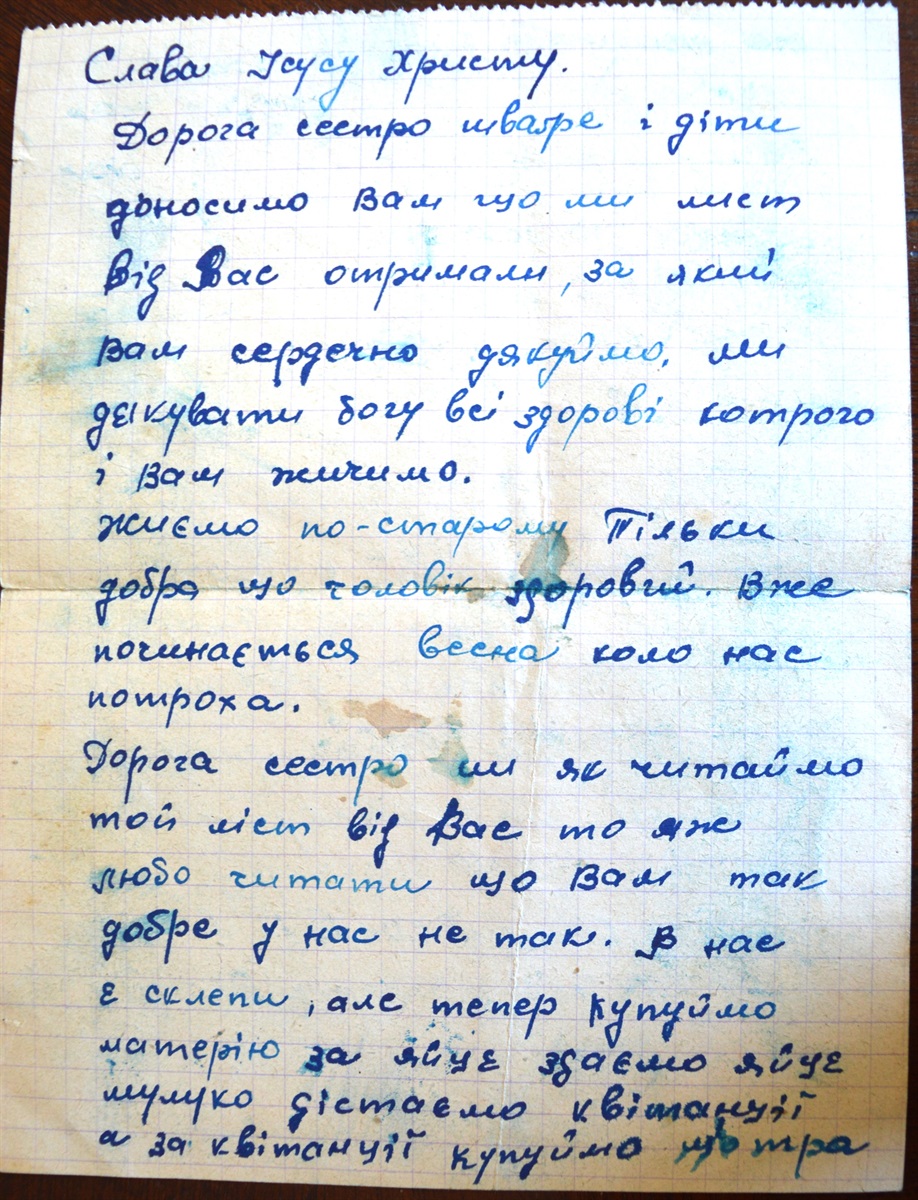 Слава Ісусу Христу.
Дорога сестро швагре і діти
доносимо Вам що ми лист
від Вас отримали, за який
Вам сердечно дякуймо. ми
дякувати богу всі здорові котрого
і Вам жичимо.
жиємо по-старому Тільки
добре що чоловік здоровий. Вже
починається весна коло нас
потроха.
Дорога сестро ми як читаймо
той ліст від Вас то яж
любо читати що Вам так
добре у нас не так. В нас
є склепи, але тепер купуймо
матерію за яйце здаємо яйце
мулуко дістаємо квітанції
а за квітанції купуймо що тра